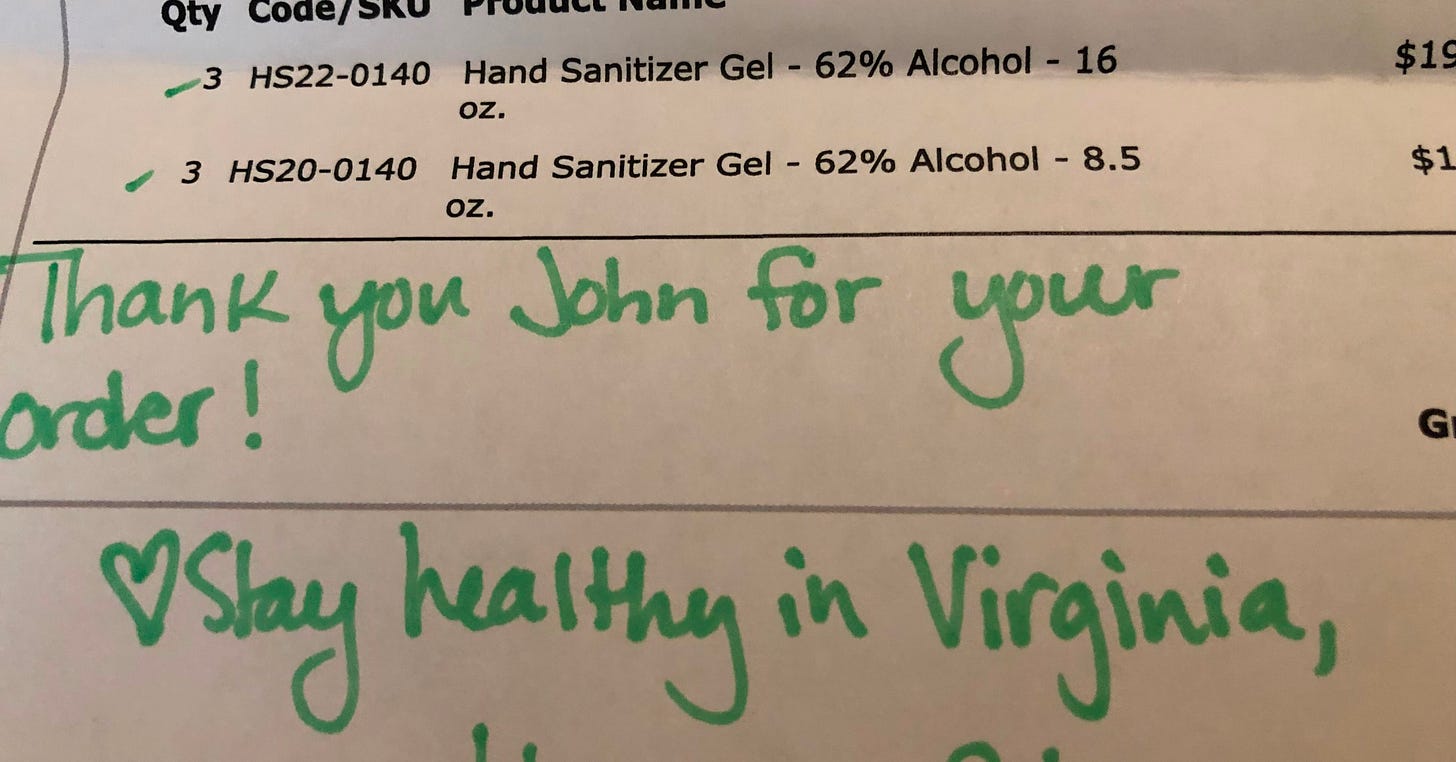 Qty Code/SKU Product Name
3 HS22-0140 Hand Sanitizer Gel - 62% Alcohol - 16 $19
oz.
3 HS20-0140 Hand Sanitizer Gel - 62% Alcohol - 8.5 $1
oz.
Thank you John for your
order!
♡Stay healthy in Virginia,